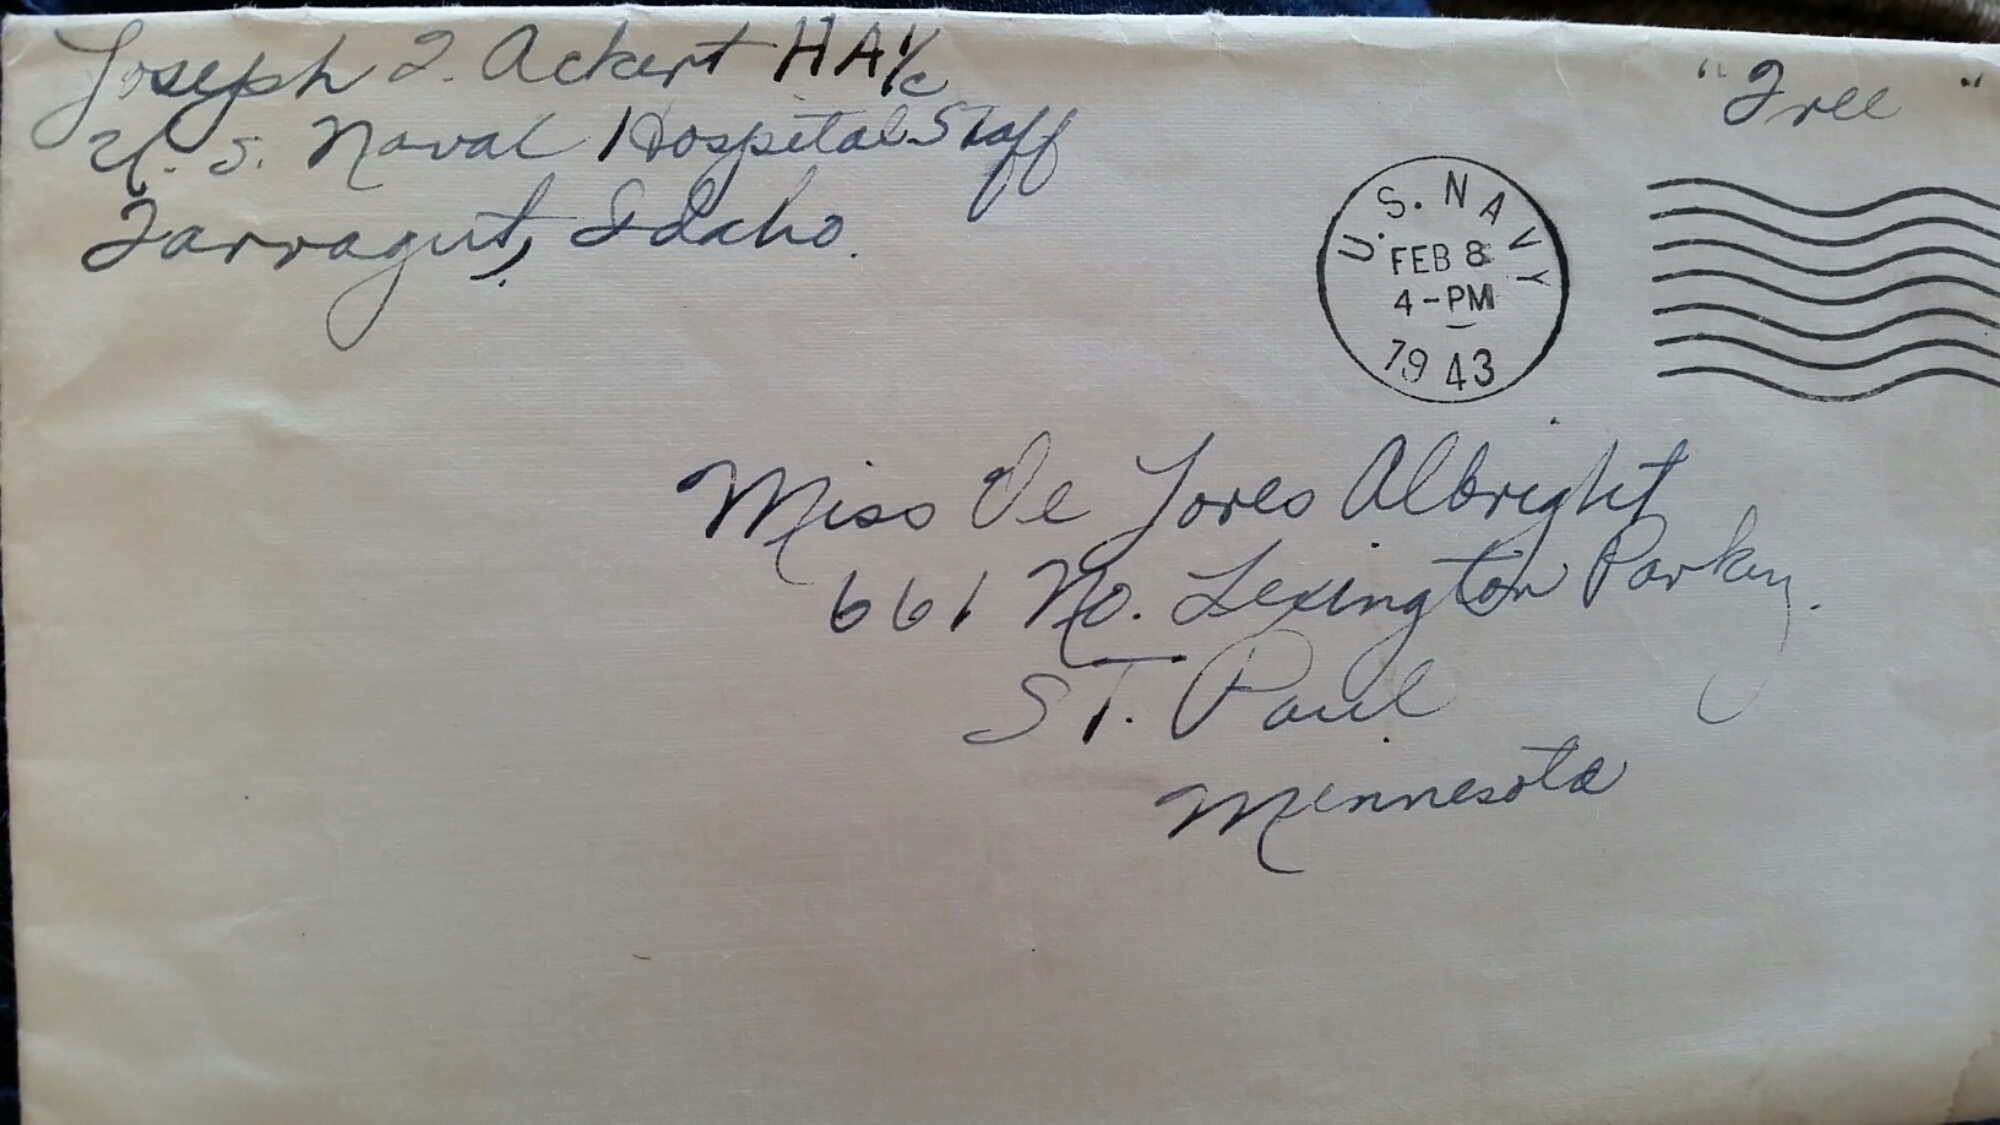 Joseph J. Ackert HA1/c
U.S. Naval Hospital Staff
Farragut, Idaho.
"Free"
U.S. NAVY
FEB 8
4-PM
1943
Miss De Lores Albright
661 No. Lexington Parkwy.
ST. Paul
Minnesota